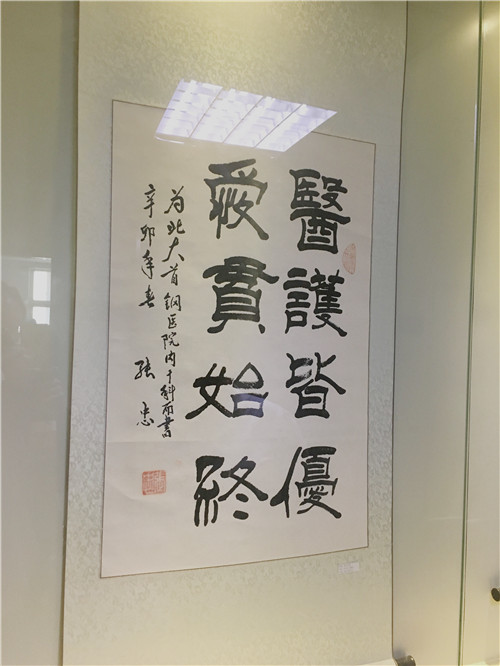 醫護皆優
愛貫始終
为北大首钢医院内干科而書
辛卯年春 張忠